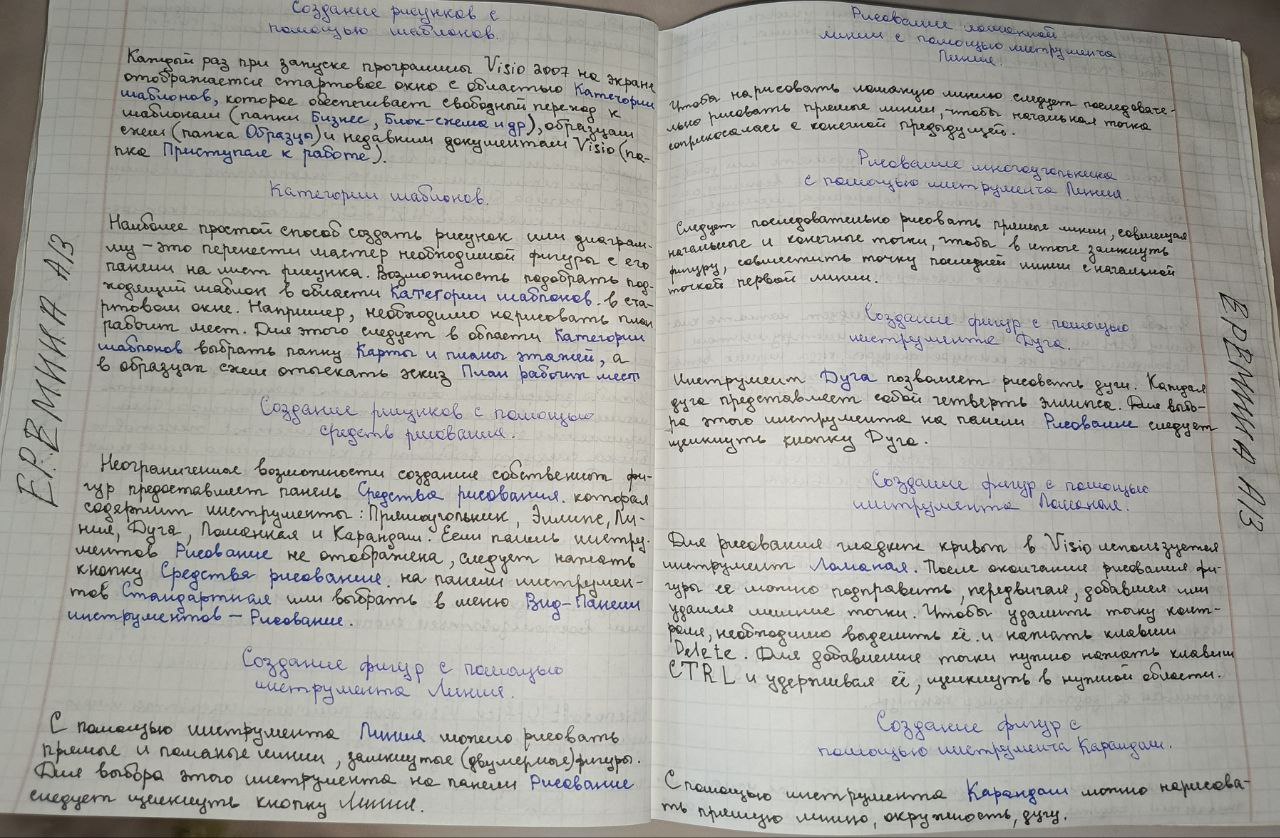 Создание рисунков с
помощью шаблонов.
Каждый раз при запуске программы Visio 2007 на экране
отображается стартовое окно с областью Категории
шаблонов, которое обеспечивает свободный переход к
шаблонам (папки Бизнес, Блок-схема и др), образцам
схем (папка Образцы) и недавним документам Visio (па-
пка Приступая к работе).
Категории шаблонов.
Наиболее простой способ создать рисунок или диаграм-
му – это перенести мастер необходимой фигуры с его
панели на лист рисунка. Возможность подобрать под-
ходящий шаблон в области Категории шаблонов. в ста-
ртовом окне. Например, необходимо нарисовать план
рабочих мест. Для этого следует в области Категории
шаблонов выбрать папку Карты и планы этажей, а
в образцах схем отыскать эскиз План рабочих мест
Создание рисунков с помощью
средств рисования.
Неограниченные возможности создания собственных фи-
гур предоставляет панель Средства рисования. которая
содержит инструменты: Прямоугольник, Эллипс, Ли-
ния, Дуга, Ломанная и Карандаш. Если панель инстру-
ментов Рисование не отображена, следует нажать
кнопку Средства рисование. на панели инструмен-
тов Стандартная или выбрать в меню Вид-Панели
инструментов – Рисование.
Создание фигур с помощью
инструмента Линия.
С помощью инструмента Линия можно рисовать
прямые и ломаные линии, замкнутые (двумерные) фигуры.
Для выбора этого инструмента на панели Рисование
следует щелкнуть кнопку Линия.
ЕРЁМИНА А13
Рисование ломанной
линии с помощью инструмента
Линия.
Чтобы нарисовать ломаную линию следует последовате-
льно рисовать прямые линии, чтобы начальная точка
соприкасалась с конечной предыдущей.
Рисование многоугольника
с помощью инструмента Линия.
Следует последовательно рисовать прямые линии, совмещая
начальные и конечные точки, чтобы в итоге замкнуть
фигуру, совместить точку последней линии с начальной
точкой первой линии.
Создание фигур с помощью
инструмента Дуга.
Инструмент Дуга позволяет рисовать дуги. Каждая
дуга представляет собой четверть эллипса. Для выбо-
ра этого инструмента на панели Рисование следует
щелкнуть кнопку Дуга.
Создание фигур с помощью
инструмента Ломаная.
Для рисования гладких кривых в Visio используется
инструмент Ломаная. После окончания рисования фи-
гуры её можно подправить, передвигая, добавляя или
удаляя лишние точки. Чтобы удалить точку конт-
роля, необходимо выделить её. и нажать клавиш
Delete. Для добавления точки нужно нажать клавиш
CTRL и удерживая её, щелкнуть в нужной области.
Создание фигур с
помощью инструмента Карандаш.
С помощью инструмента Карандаш можно нарисова-
ть прямую линию, окружность, дугу.
ЕРЁМИНА А13